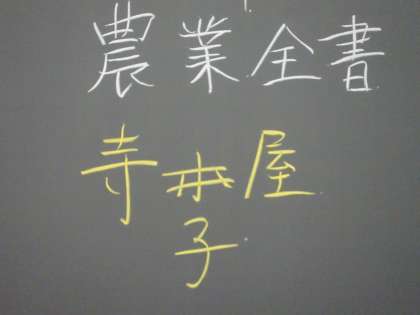 農業全書
寺子屋